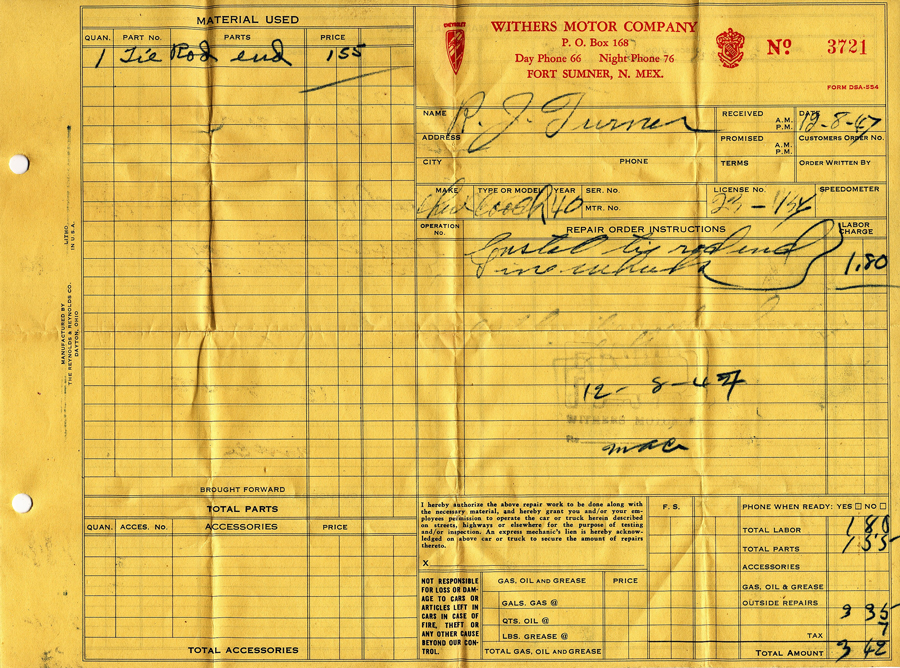 MATERIAL USED
QUAN. PART No. PARTS PRICE
1 Tie Rod end 155
CHEVROLET
WITHERS MOTOR COMPANY
P. O. Box 168
Day Phone 66 Night Phone 76
FORT SUMNER, N. MEX.
No 3721
FORM DSA-554
NAME R. J. Turner
RECEIVED A.M. P.M.
DATE 12-8-47
ADDRESS
PROMISED A.M. P.M.
CUSTOMERS ORDER No.
CITY PHONE
TERMS
ORDER WRITTEN BY
MAKE TYPE OR MODEL YEAR SER. No. LICENSE No. SPEEDOMETER
Chev 40 MTR. No.
OPERATION No.
REPAIR ORDER INSTRUCTIONS
LABOR CHARGE
Install tie rod end
1.80
12-8-47
WITHERS MOTOR
BROUGHT FORWARD
TOTAL PARTS
QUAN. ACCES. No. ACCESSORIES PRICE
TOTAL ACCESSORIES
I hereby authorize the above repair work to be done along with
the necessary material, and hereby grant you and/or your em-
ployees permission to operate the car or truck herein described
on streets, highways or elsewhere for the purpose of testing
and/or inspection. An express mechanic's lien is hereby acknow-
ledged on above car or truck to secure the amount of repairs
thereto.
X
NOT RESPONSIBLE
FOR LOSS OR DAM-
AGE TO CARS OR
ARTICLES LEFT IN
CARS IN CASE OF
FIRE, THEFT OR
ANY OTHER CAUSE
BEYOND OUR CON-
TROL.
GAS, OIL AND GREASE PRICE
GALS. GAS @
QTS. OIL @
LBS. GREASE @
TOTAL GAS, OIL AND GREASE
F. S.
PHONE WHEN READY: YES □ NO □
TOTAL LABOR 1 80
TOTAL PARTS 1 55
ACCESSORIES
GAS, OIL & GREASE
OUTSIDE REPAIRS 3 35
TAX 7
TOTAL AMOUNT 3 42
LITHO. IN U.S.A.
MANUFACTURED BY
THE REYNOLDS & REYNOLDS CO.
DAYTON, OHIO